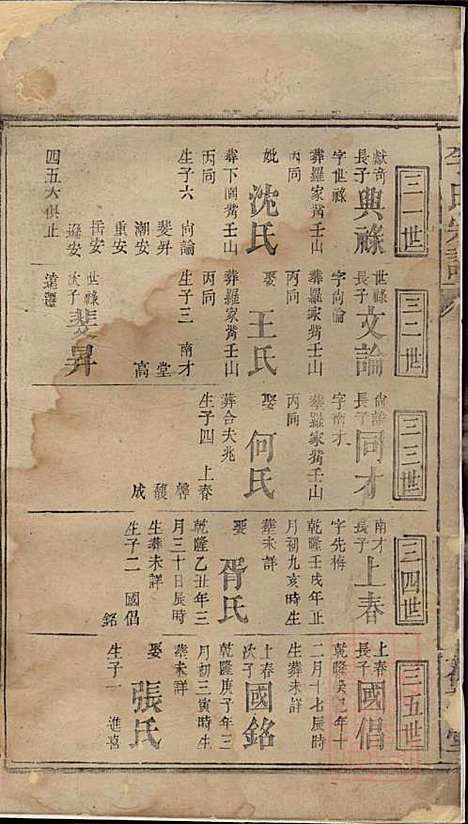 三一世
獻奇
長子
興祿
字世祿
葬羅家嘴壬山
丙同
妣
沈氏
葬下園嘴壬山
丙同
生子六
尚論
斐昇
潮安
重安
岳安
四五六俱止
三二世
世祿
長子
文論
字尚論
葬羅家嘴壬山
丙同
娶
王氏
葬羅家嘴壬山
丙同
生子三
南才
堂
高
世祿
次子
斐昇
遠遷
三三世
尚論
長子
同才
字南才
葬羅家嘴壬山
丙同
娶
何氏
葬合夫兆
生子四
上春
馨
馥
成
三四世
南才
長子
上春
字先梅
乾隆壬戌年正
月初九亥時生
葬未詳
娶
胥氏
乾隆乙丑年三
月三十日辰時
生葬未詳
生子二
國倡
銘
三五世
上春
長子
國倡
乾隆癸巳年十
二月十七辰時
生葬未詳
上春
次子
國銘
乾隆庚子年三
月初三寅時生
葬未詳
娶
張氏
生子一
進喜
李氏宗譜
堂